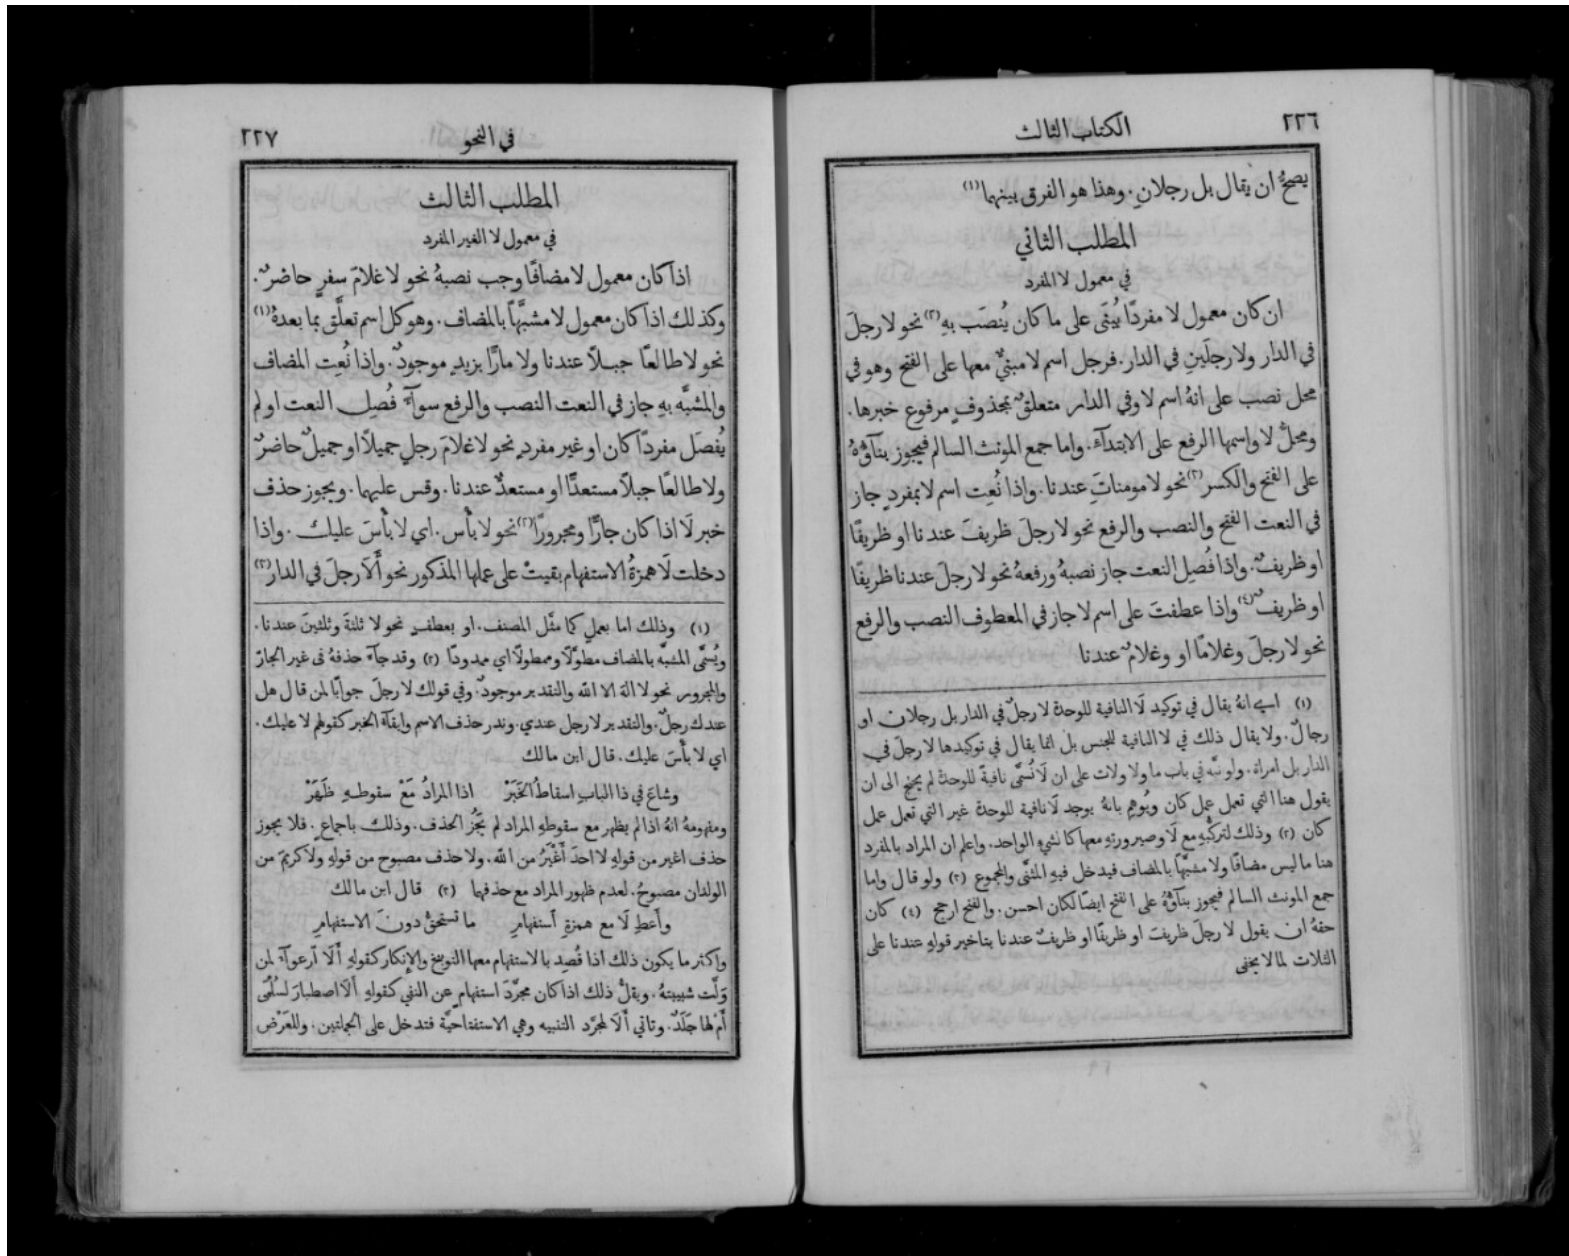 ٢٢٦
الكتاب الثالث
يصحُّ ان يقال بل رجلانِ. وهذا هو الفرق بينهما(١)
المطلب الثاني
في معمول لا المفرد
ان كان معمول لا مفردًا يُبقَى على ما كان يُنصَب بهِ(٢) نحو لا رجلَ
في الدار ولا رجلَينِ في الدار. فرجل اسم لا مبنيٌّ معها على الفتح وهو في
محل نصب على انهُ اسم لا وفي الدار متعلقٌ بمحذوفٍ مرفوع خبرها.
ومحلُّ لا واسمها الرفع على الابتدآء. واما جمع المونث السالم فيجوز بنآؤُهُ
على الفتح والكسر(٣) نحو لا مومناتَِ عندنا. واذا نُعِت اسم لا بمفردٍ جاز
في النعت الفتح والنصب والرفع نحو لا رجلَ ظريفَ عندنا او ظريفًا
او ظريفٌ. واذا فُصِل النعت جاز نصبهُ ورفعهُ نحو لا رجلَ عندنا ظريفًا
او ظريفٌ(٤) واذا عطفتَ على اسم لا جاز في المعطوف النصب والرفع
نحو لا رجلَ وغلامًا او وغلامٌ عندنا
(١) اي انهُ يقال في توكيد لَا النافية للوحدة لا رجلٌ في الدار بل رجلان او
رجالٌ. ولا يقال ذلك في لا النافية للجنس بل انما يقال في توكيدها لا رجلَ في
الدار بل امراة. ولو نبَّه في باب ما ولا ولات على ان لَا تُسمَّى نافيةً للوحدة لم يحتج الى ان
يقول هنا التي تعمل عمل كان ويُوهِم بانهُ يوجد لَا نافية للوحدة غير التي تعمل عمل
كان (٢) وذلك لتركُّبهِ مع لَا وصيرورتهِ معها كالشيء الواحد. واعلم ان المراد بالمفرد
هنا ما ليس مضافًا ولا مشبَّهًا بالمضاف فيدخل فيهِ المثنَّى والمجموع (٣) ولو قال واما
جمع المونث السالم فيجوز بنآؤُهُ على الفتح ايضًا لكان احسن. والفتح ارجح (٤) كان
حقهُ ان يقول لا رجلَ ظريفَ او ظريفًا او ظريفٌ عندنا بتاخير قولهِ عندنا على
الثلاث لما لا يخفى
٢٩
في النحو
٢٢٧
المطلب الثالث
في معمول لا الغير المفرد
اذا كان معمول لا مضافًا وجب نصبهُ نحو لا غلامَ سفرٍ حاضرٌ.
وكذلك اذا كان معمول لا مشبَّهًا بالمضاف. وهو كل اسم تعلَّق بما بعدهُ(١)
نحو لا طالعًا جبلًا عندنا ولا مارًّا بزيدٍ موجودٌ. واذا نُعِت المضاف
والمشبَّه بهِ جاز في النعت النصب والرفع سوآءٌ فُصِل النعت او لم
يُفصَل مفردًا كان او غير مفردٍ نحو لا غلامَ رجلٍ جميلًا او جميلٌ حاضرٌ
ولا طالعًا جبلًا مستعدًّا او مستعدٌّ عندنا. وقس عليهما. ويجوز حذف
خبر لَا اذا كان جارًّا ومجرورًا(٢) نحو لا بأْس. اي لا بأْسَ عليك. واذا
دخلت لَا همزةُ الاستفهام بقيت على عملها المذكور نحو أَلَا رجلَ في الدار(٣)
(١) وذلك اما بعملٍ كما مثَّل المصنف. او بعطفٍ نحو لا ثلثةَ وثلثينَ عندنا.
ويُسمَّى المشبَّه بالمضاف مطوَّلًا وممطولًا اي ممدودًا (٢) وقد جآءَ حذفهُ في غير الجارّ
والمجرور نحو لا الهَ الا الله والتقدير موجودٌ. وفي قولك لا رجلَ جوابًا لمن قال هل
عندك رجلٌ. والتقدير لا رجل عندي. وندر حذف الاسم وابقآءُ الخبر كقولهم لا عليك.
اي لا بأْسَ عليك. قال ابن مالك
وشاعَ في ذا الباب اسقاطُ الخَبَرْ اذا المرادُ مَعْ سقوطهِ ظَهَرْ
ومفهومهُ انهُ اذا لم يظهر مع سقوطهِ المراد لم يَجُز الحذف. وذلك باجماعٍ. فلا يجوز
حذف اغير من قولهِ لا احدَ أَغْيَرُ من الله. ولا حذف مصبوح من قولهِ ولا كريمَ من
الولدان مصبوحُ. لعدم ظهور المراد مع حذفهما (٣) قال ابن مالك
وأَعطِ لَا مع همزةِ أستفهامِ ما تستحقُّ دونَ الاستفهامِ
واكثر ما يكون ذلك اذا قُصِد بالاستفهام معها التوبيخ والإنكار كقولهِ أَلَا أرعوآءَ لمن
وَلَّت شبيبتهُ. ويقلُّ ذلك اذا كان مجرَّدَ استفهامٍ عن النفي كقولهِ أَلَا اصطبارَ لسَلْمَى
أَمْ لها جَلَدٌ. وتاتي أَلَا لمجرَّد التنبيه وهي الاستفتاحيَّة فتدخل على الجملتين، وللعَرْض